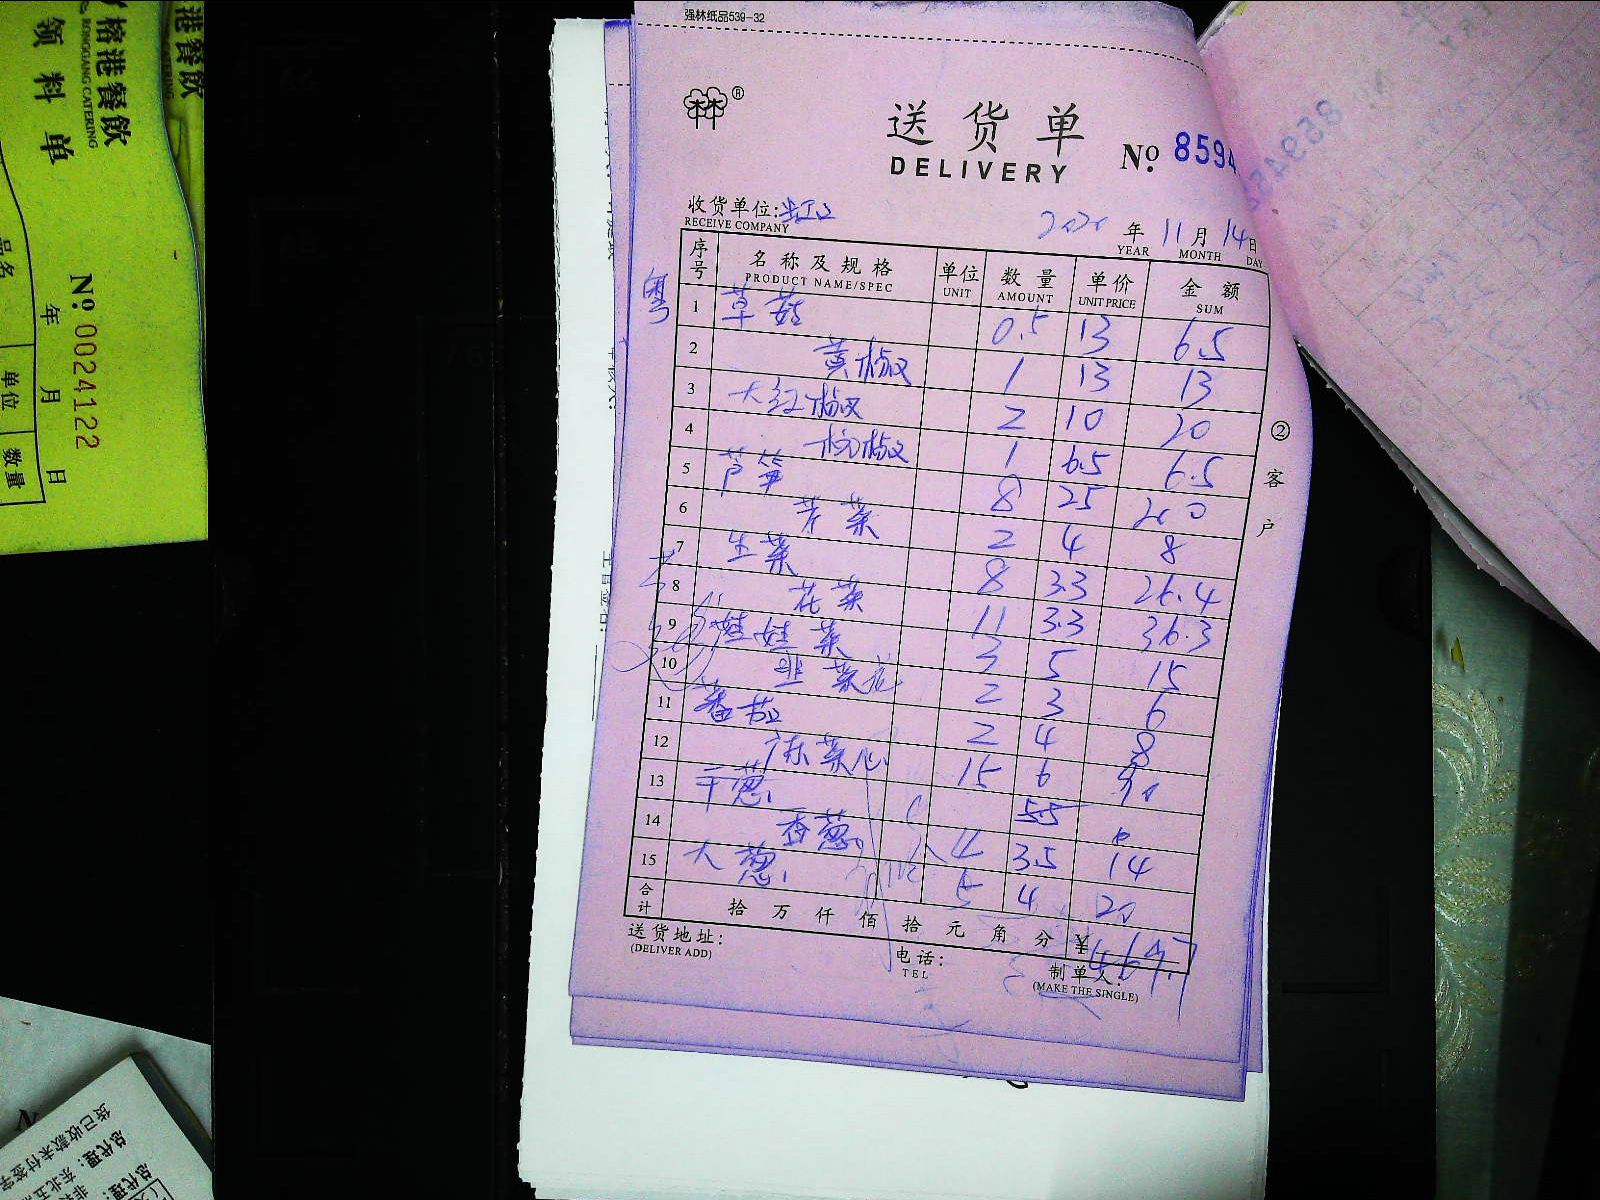 强林纸品539-32
林®
送货单
DELIVERY
№ 8594
收货单位:
RECEIVE COMPANY
2020 年 11 月 14 日
YEAR MONTH DAY
序号 名称及规格 单位 数量 单价 金额
PRODUCT NAME/SPEC UNIT AMOUNT UNIT PRICE SUM
粤
1 草菇 0.5 13 6.5
2 黄椒 1 13 13
3 大红椒 2 10 20
4 杭椒 1 6.5 6.5
5 芦笋 8 25 200
6 芹菜 2 4 8
7 生菜 8 3.3 26.4
8 花菜 11 3.3 36.3
9 娃娃菜 3 5 15
10 韭菜花 2 3 6
11 番茄 2 4 8
12 广东菜心 15 6 90
13 干葱 5.5
14 香葱 4 3.5 14
15 大葱 5 4 20
合计 拾 万 仟 佰 拾 元 角 分 ¥469.7
送货地址:
(DELIVER ADD)
电话:
TEL
制单人:
(MAKE THE SINGLE)
② 客户
榕港餐飲
RONGGANG CATERING
领料单
№ 0024122
年 月 日
品名 单位 数量
港餐飲
货已收款未付签字
总代理:东北五
总代理: